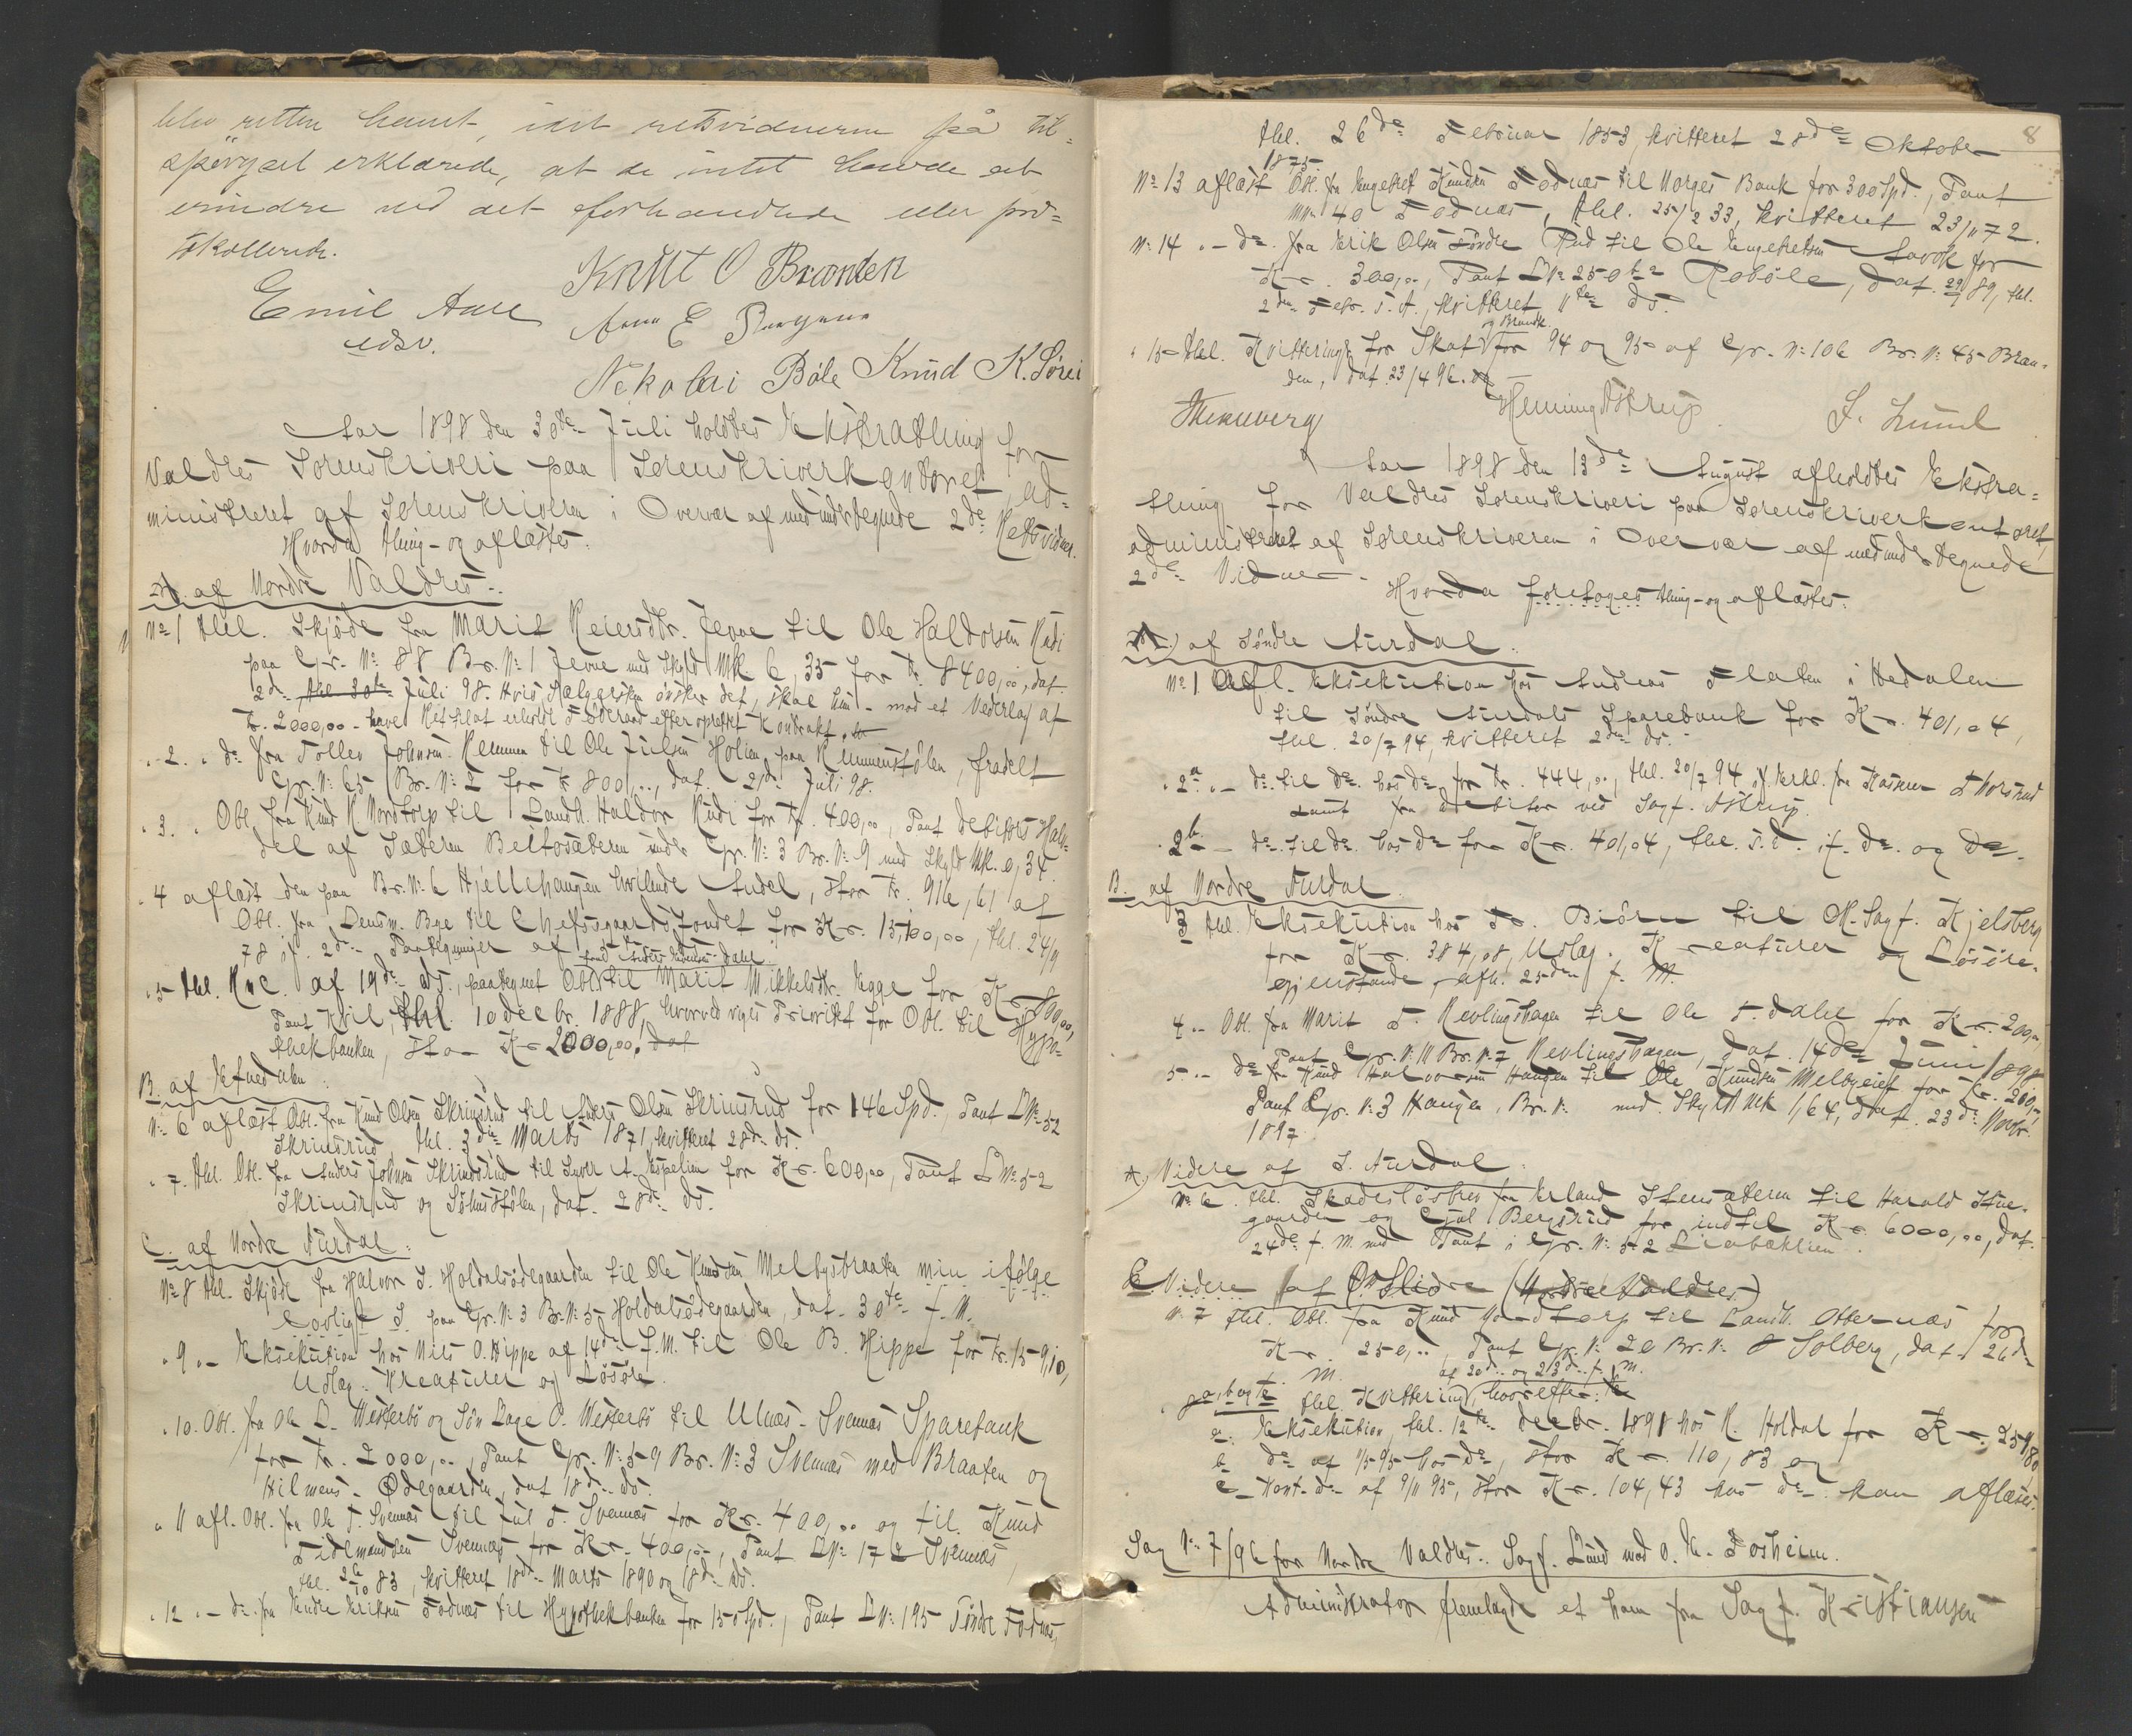 blev retten hævet, idet retsvidnerne på til-
spørgsel erklærede, at de intet havde at
erindre ved det forhandlede eller pro-
tokollerede.
Knut O Branden
Emil Aall
edsv.
Nekolai Bøle Knud K. Sørei
Aar 1898 den 30te Juli holdtes Ekstrathing for
Valdres Sorenskriveri paa Sorenskriverkontoret, ad-
ministreret af Sorenskriveren i Overvær af medundertegnede 2de Retsvidner.
Hvorda thing- og aflæstes:
A. af Nordre Valdres:
No 1 thl. Skjøde fra Marit Reiersdtr. Jevne til Ole Haldorsen Rudi
paa Gr. No 88 Br. No 1 Jevne med Skyld Mk 6,35 for Kr 8400,00, dat.
2den Juli 98. Hvis Sælgersken ønsker det, skal hun mod et Vederlag af
Kr. 2000,00 have Ret til at erholde Føderaad efter oprettet Kontrakt.
" 2. " do fra Tollev Johnsen Remmen til Ole Julsen Holien paa Remmenstølen, fradelt
Gr. No 65 Br. No 2 for Kr 800,00, dat. 21de Juli 98.
" 3. " Obl. fra Knud K Nordtorp til Landh. Haldor Rudi for Kr. 400,00, Pant Debitors Halv-
del af Sæteren Beitosæteren under Gr. No 3 Br. No 9 med Skyld Mk. 0,34.
" 4 aflæst den paa Br. No 6 Hjellehaugen hvilende Andel, stor Kr. 916,61 af
Obl. fra Lensm. Bye til Chefsgaardsfondet for Kr. 15,100,00, thl. 24/9
78 jf. 2de Paategninger af
" 5 thl. Rec. af 19de ds., paategnet Obl. til Marit Mikkelsdtr. Egge for Kr 800,00,
Pant Kvil, thl. 10 decbr. 1888, hvorved viges Prioritet for Obl. til Hypo-
thekbanken, stor Kr 2000,00.
B. af Etnedalen
No 6 aflæst Obl. fra Knud Olsen Skrinsrud til Anders Olsen Skrinsrud for 146 Spd., Pant LNo 52
Skrinsrud thl. 3die Marts 1871, kvitteret 28de ds.
" 7. thl. Obl. fra Anders Johnsen Skrindsrud til Iver A. Espelien for Kr. 600,00, Pant LNo 52
Skrinsrud og Sølhusstølen, dat. 28de ds.
C. af Nordre Aurdal:
No 8 thl. Skjøde fra Halvor I. Holdalsødegaarden til Ole Knudsen Melbysbraaten min. ifølge
Lovligt S. paa Gr. No 3 Br. No 5 Holdalsødegaarden, dat. 30te f. M.
" 9 " - Eksekution hos Nils O. Hippe af 14de f. M. til Ole B. Hippe for Kr. 159,10,
Udlæg: Kreaturer og Løsøre.
" 10. Obl. fra Ole L. Westerbø og Søn Lage O. Westerbø til Ulnæs-Svennæs Sparebank
for Kr. 2000,00, Pant Gr. No 59 Br. No 3 Svennæs med Braaten og
Hilmens-Ødegaarden, dat 18de ds.
" 11 afl. Obl. fra Ole T. Svennæs til Jul T. Svennæs for Kr. 400,00 og til Knud
Tidemandsen Svennæs for Kr. 400,00, Pant LNo 172 Svennæs,
thl. 26/10 83, kvitteret 18de Marts 1890 og 18de ds.
" 12 " - do fra Endre Eriksen Fodnæs til Hypothekbanken for 150 Spd., Pant LNo 195 Søndre Fodnæs,
8
thl. 26de Februar 1853, kvitteret 28de Oktober
1875.
No 13 aflæst Obl. fra Engebret Knudsen Fodnæs til Norges Bank for 300 Spd., Pant
MNo 40 Fodnæs, thl. 25/2 33, kvitteret 23/11 72.
No 14 " - do. fra Erik Olsen Søndre Rud til Ole Engebretsen for
Kr. 300,00, Pant LNo 250 Robøle, dat. 29/1 89, thl.
2den Febr. s. A., kvitteret 11te ds.
og Brandk.
" 15 thl. Kvittering for Skat for 94 og 95 af Gr. No 106 Br. No 45 Bran-
den, dat. 23/4 96.
Henning Astrup
Aar 1898 den 13de August afholdtes Ekstra-
thing for Valdres Sorenskriveri paa Sorenskriverkontoret,
administreret af Sorenskriveren i Overvær af medundertegnede
2de Vidner.
Hvorda foretoges thing- og aflæstes:
A.) af Søndre Aurdal.
No 1 Afl. Eksekution hos Andreas Flaten i Hedalen
til Søndre Aurdals Sparebank for Kr. 401,04,
thl. 20/7 94, kvitteret 2den ds.
" 2a " - do. til do. hos do. for Kr. 444,00, thl. 20/7 94 jf. Erkl. fra Kasserer Thorsrud
samt fra Debitor ved Sagf. Astrup.
" 2b - do. til do. hos do for Kr. 401,04, thl. s. d. jf. do. og do.
B. af Nordre Aurdal
3 thl. Eksekution hos Biørn til O.-Sagf. Kjelsberg
for Kr. 384,08, Udlæg: Kreaturer og Løsøre-
gjenstande, afh. 25de f. M.
4 " - Obl. fra Marit T. Revlingshagen til Ole T. Dahl for Kr. 200,00,
Pant Gr. No 11 Br. No 7 Revlingshagen, dat. 14de Juni 1898.
5 " - do fra Knud Halvorsen Haugen til Ole Knudsen Melbyeiet for Kr. 200,00,
Pant Gr. No 3 Haugen, Br. No med Skyld Mk 1,64, dat. 23de Novbr.
1897.
A.) Videre af S. Aurdal:
No 6 thl. Skadesløsbrev fra Erland Stensæteren til Harald Stue-
gaarden og Bergsrud for indtil Kr 6000,00, dat.
24de f. M. med Pant i Gr. No 52 Liabækken.
C Videre af Ø. Slidre (Nordre Valdres)
No 7 thl. Obl. fra Knud Nordtorp til Landh. Otternæs for
Kr. 250,00, Pant Gr. No 20 Br. No 8 Solberg, dat. 26de
f. M.
af 20de og 23de f. M.
" 8a, b og c thl. Kvittering, hvorefter:
a. Eksekution, thl. 12te decbr. 1891 hos K. Holdal for Kr. 251,80
b do af 1/5 95 hos do, stor Kr. 110,83 og
c - Kont. do af 9/11 95, stor Kr. 104,43 hos do kan aflæses.
Sag No 7/96 for Nordre Valdres: Sagf. Lund mod O. K. Fosheim.
Administrator fremlagde et ham fra Sagf. Kristiansen